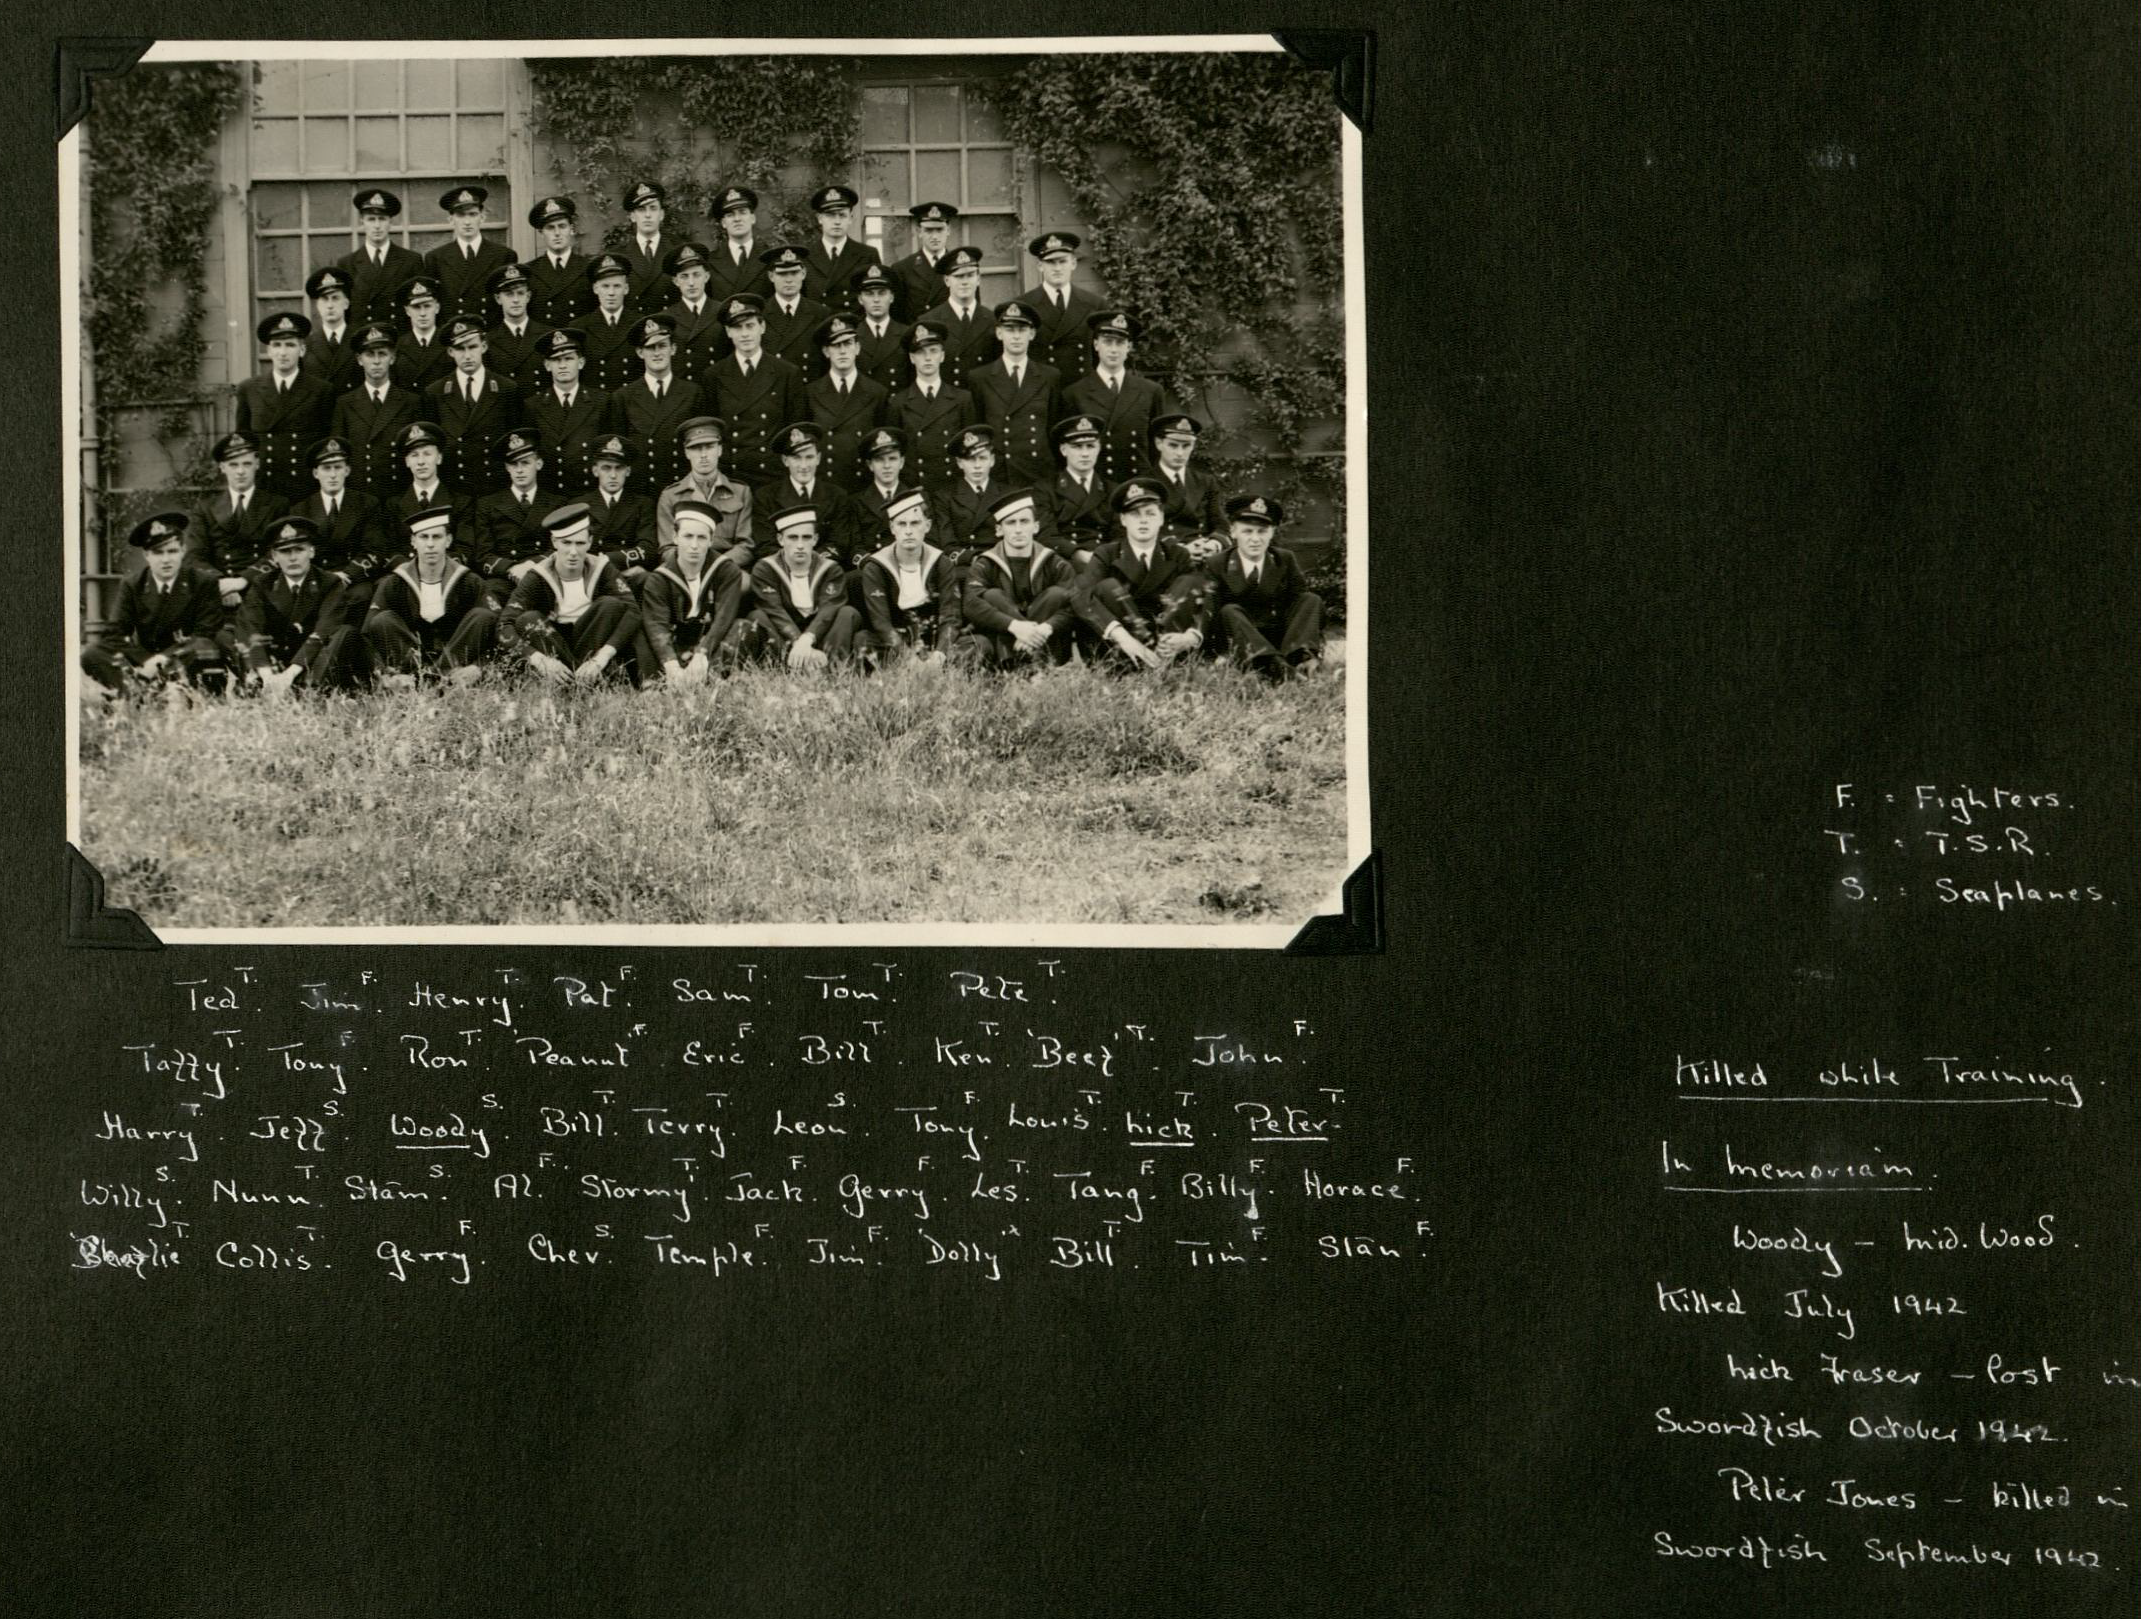 Ted T. Jim F. Henry T. Pat F. Sam T. Tom T. Pete T.
Taffy T. Tony F. Ron T. 'Peanut' F. Eric F. Bill T. Ken T. 'Beef' T. John F.
Harry T. Jeff S. Woody S. Bill T. Terry T. Leon S. Tony F. Louis T. Mick T. Peter T.
Willy S. Nunn T. Stam S. Al F. Stormy T. Jack F. Gerry F. Les T. Tang F. Billy F. Horace F.
T. Collis T. Gerry F. Chev S. Temple F. Jim F. 'Dolly' x Bill T. Tim F. Stan F.
F. : Fighters.
T. : T.S.R.
S. : Seaplanes.
Killed while Training.
In Memoriam.
Woody – Mid. Wood.
Killed July 1942
Mick Fraser – lost in
Swordfish October 1942.
Peter Jones – killed in
Swordfish September 1942.